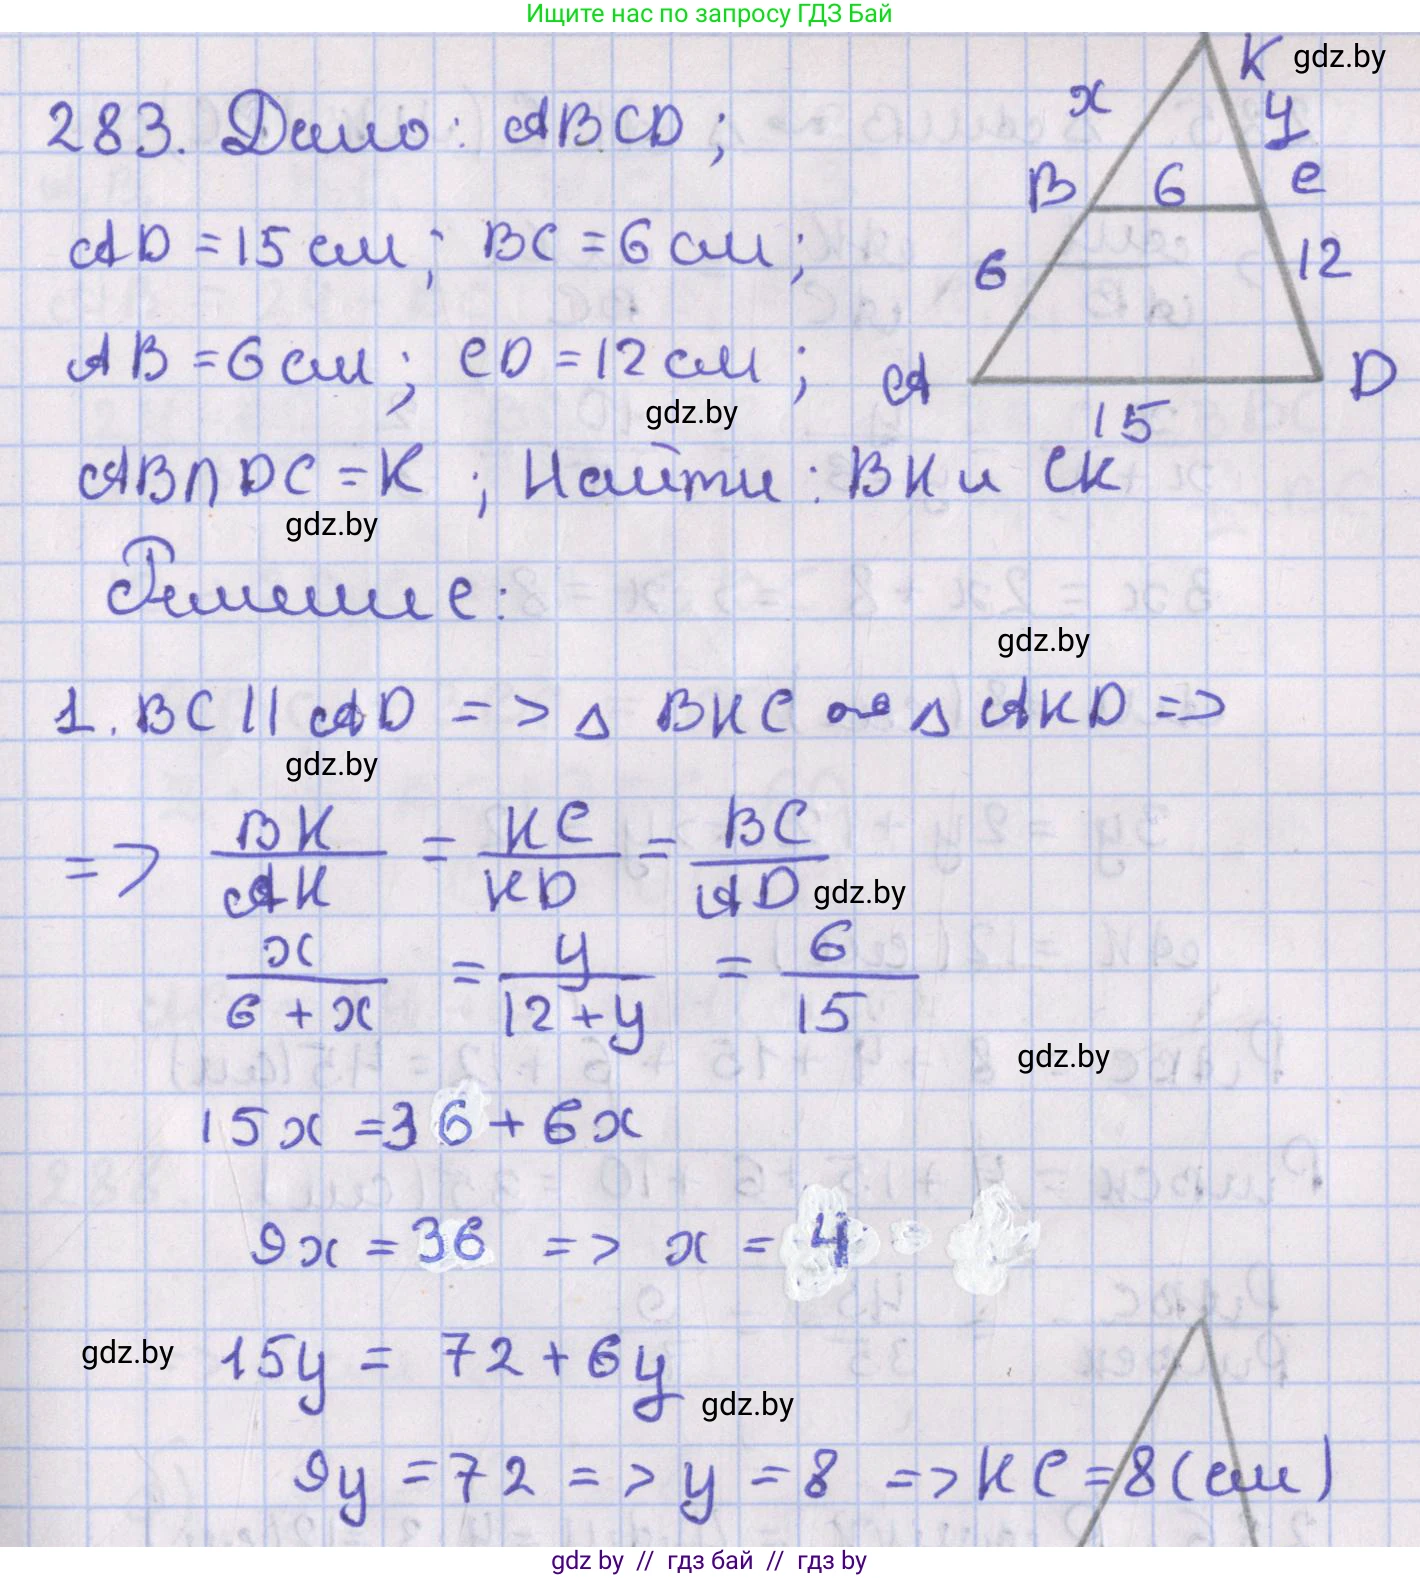 Ищите нас по запросу ГДЗ Бай
K
gdz.by
x
y
283. Дано: ABCD;
B 6 C
AD = 15 см; BC = 6 см;
6 12
AB = 6 см; CD = 12 см;
A D
gdz.by
15
AB∩DC = K; Найти: BK и CK
gdz.by
Решение:
gdz.by
1. BC || AD => △ BKC ∾ △ AKD =>
gdz.by
=> BK/AK = KC/KD = BC/AD
gdz.by
x/(6 + x) = y/(12 + y) = 6/15
gdz.by
15x = 36 + 6x
9x = 36 => x = 4
gdz.by
15y = 72 + 6y
gdz.by
9y = 72 => y = 8 => KC = 8 (см)
gdz by // гдз бай // гдз by